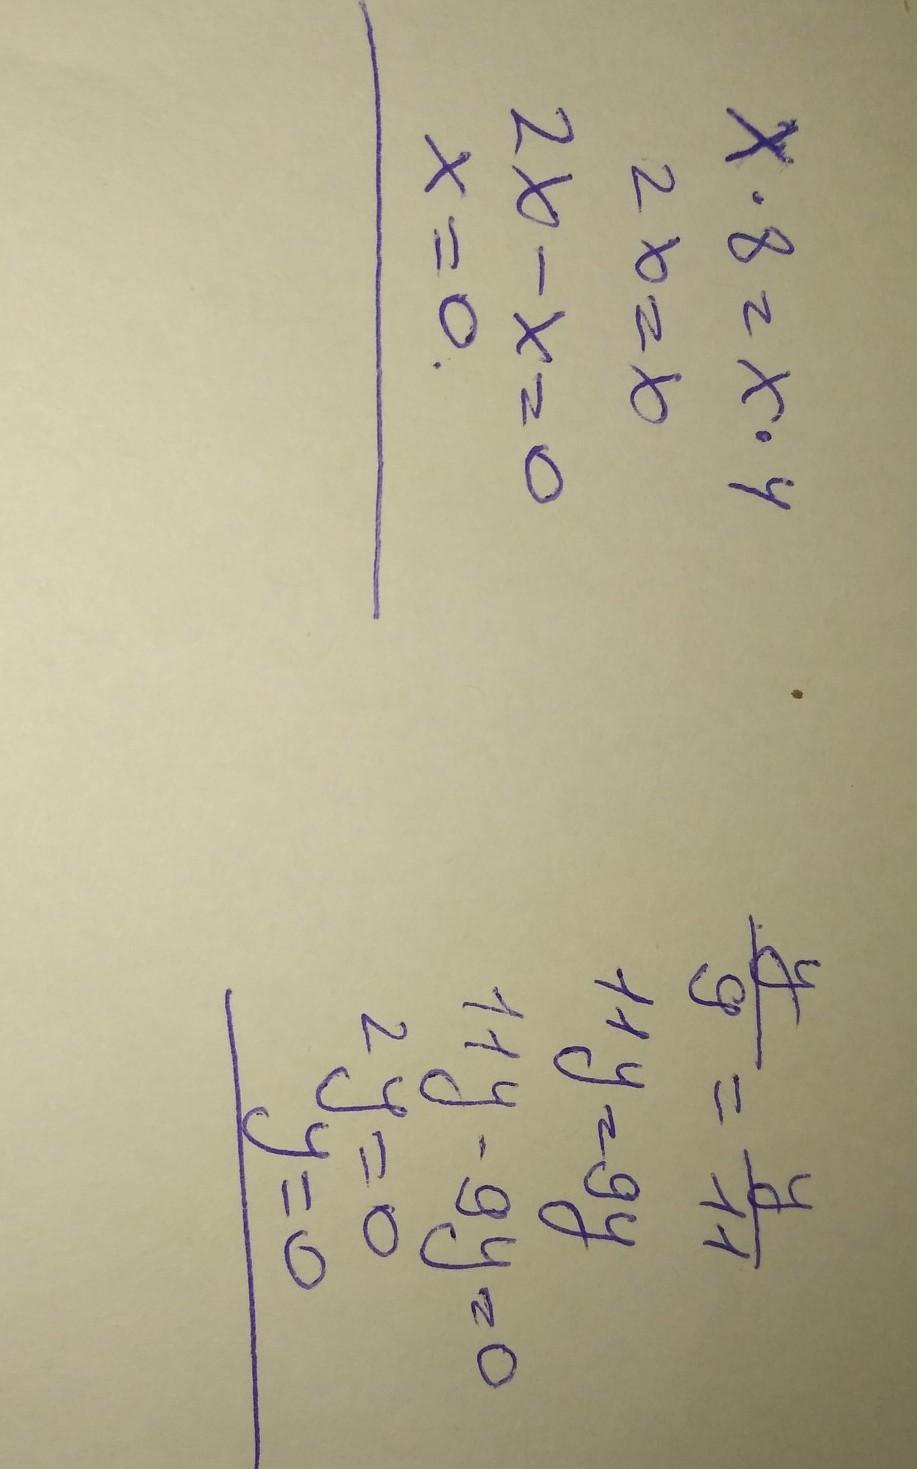 x · 8 = x · 4
2x = x
2x - x = 0
x = 0.
y/9 = y/11
11y = 9y
11y - 9y = 0
2y = 0
y = 0